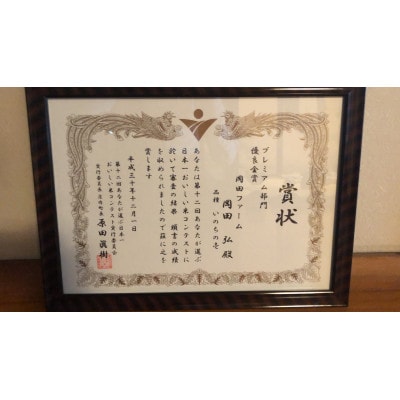 賞状
プレミアム部門
優良金賞
岡田ファーム
岡田 弘 殿
品種 いのちの壱
あなたは第十二回あなたが選ぶ
日本一おいしい米コンテストに
於いて審査の結果 頭書の成績
を収められましたので茲に之を
賞します
平成三十年十二月一日
第十二回あなたが選ぶ日本一
おいしい米コンテスト実行委員会
実行委員長 庄内町長 原田眞樹